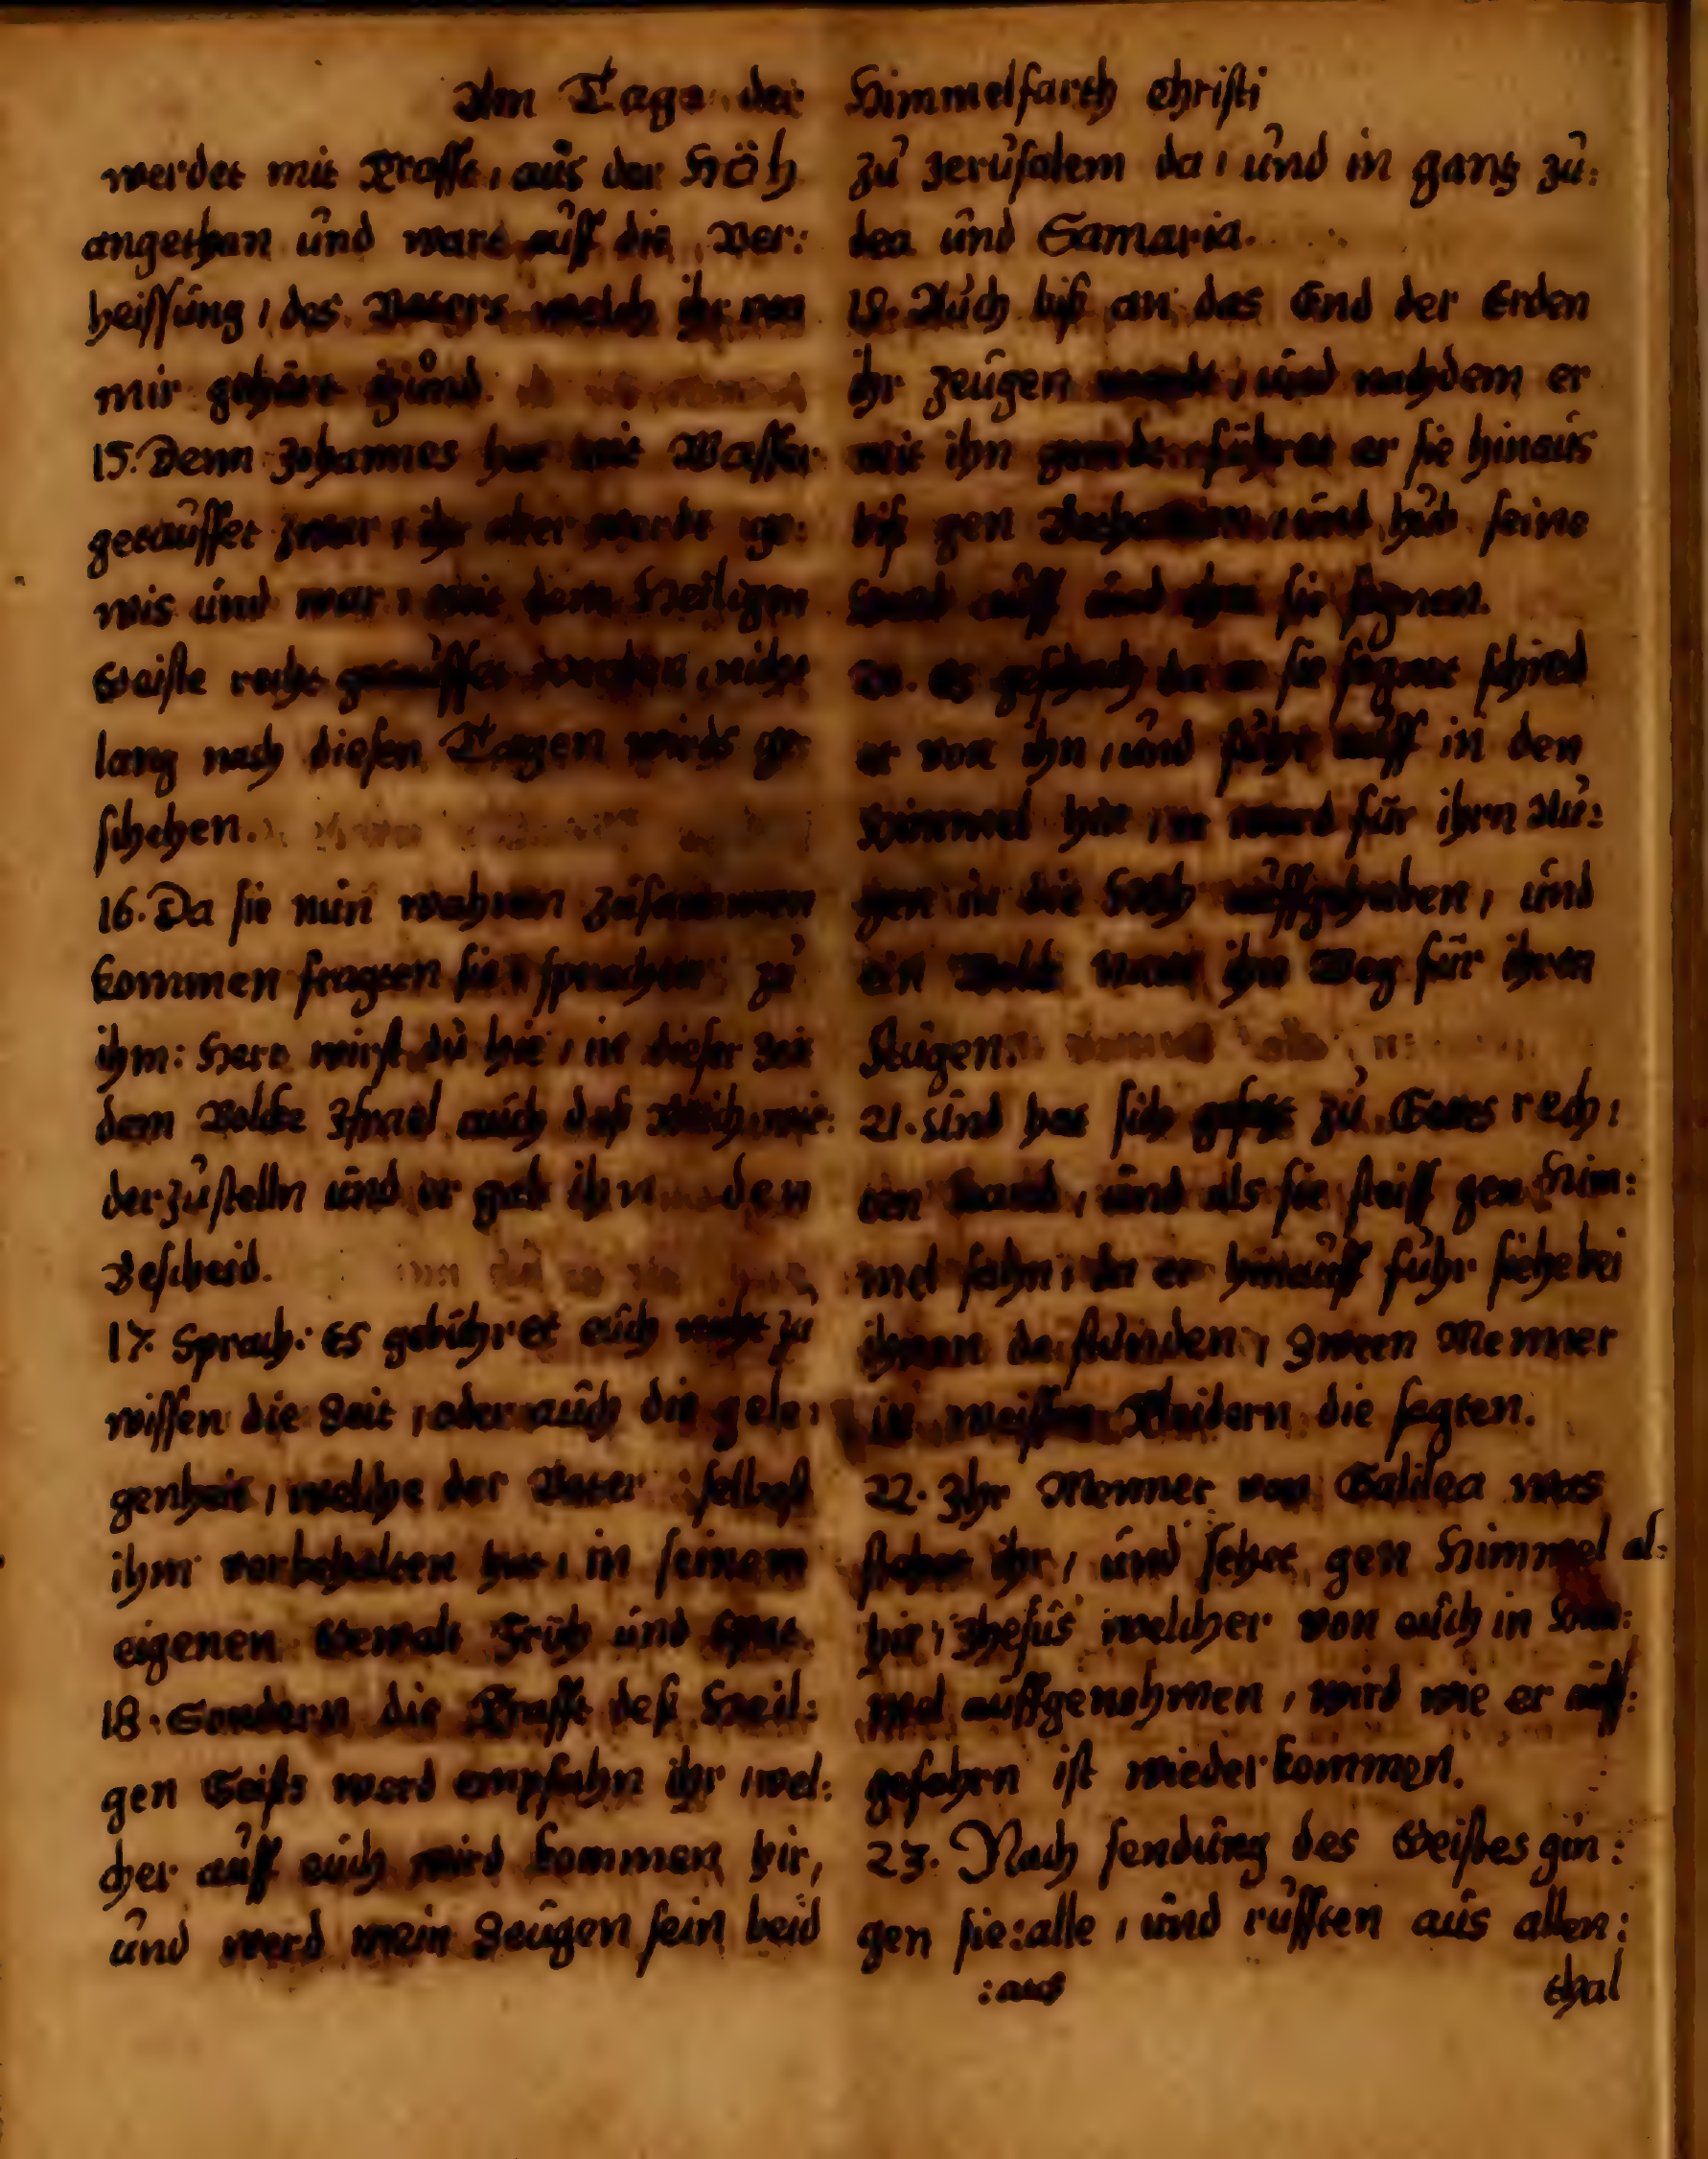 Am Tage der Himmelfarth Christi
werdet mit Krafft, aus der Höh
angethan und wart auff die Ver:
heissung, des Vaters welch ihr von
mir gehört itzund.
15. Denn Johannes hat mit Wasser
getauffet zwar, ihr aber werdt ge:
wis und war, mit dem Heiligen
Geiste recht getauffet werden, nicht
lang nach diesen Tagen wirds ge:
schehen.
16. Da sie nun wahren zusammen
kommen fragten sie sprachen zu
ihm: Herr wirst du hie, in dieser Zeit
dem Volcke Israel auch deß Reich wie:
derzustelln und er gab ihn den
Bescheid.
17. Sprach: Es gebühret euch nicht zu
wissen die Zeit, oder auch die gele:
genheit, welche der Vater selbest
ihm vorbehalten hat, in seinem
eigenen Gewalt Früh und Spat.
18. Sondern die Krafft deß Heil:
gen Geists werd empfahn ihr, wel:
cher auff euch wird kommen hir,
und werd mein Zeugen sein beid
zu Jerusalem da, und in gantz Ju:
dea und Samaria.
19. Auch biß an das End der Erden
ihr Zeugen werdt, und nachdem er
mit ihn geredt, führet er sie hinaus
biß gen Bethanien, und hub seine
Hend auff und thet sie segnen.
20. Es geschach da er sie segnet schied
er von ihn, und fuhr auff in den
Himmel hin, er ward für ihrn Au:
gen in die Höh auffgehaben, und
ein Wolck nam ihn Weg für ihren
Augen.
21. Und hat sich gesetzt zu Gotts rech:
ten Hand, und als sie steiff gen Him:
mel sahn, da er hinauff fuhr siehe bei
ihnen da stunden, Zween Menner
in weissen Kleidern die sagten.
22. Ihr Menner von Galilea was
stehet ihr, und sehet gen Himmel al:
hir, Jhesus welcher von euch in Him:
mel auffgenohmen, wird wie er auff:
gefahrn ist wieder kommen.
23. Nach sendung des Geistes gin:
gen sie:alle, und rufften aus allen:
:aus thal